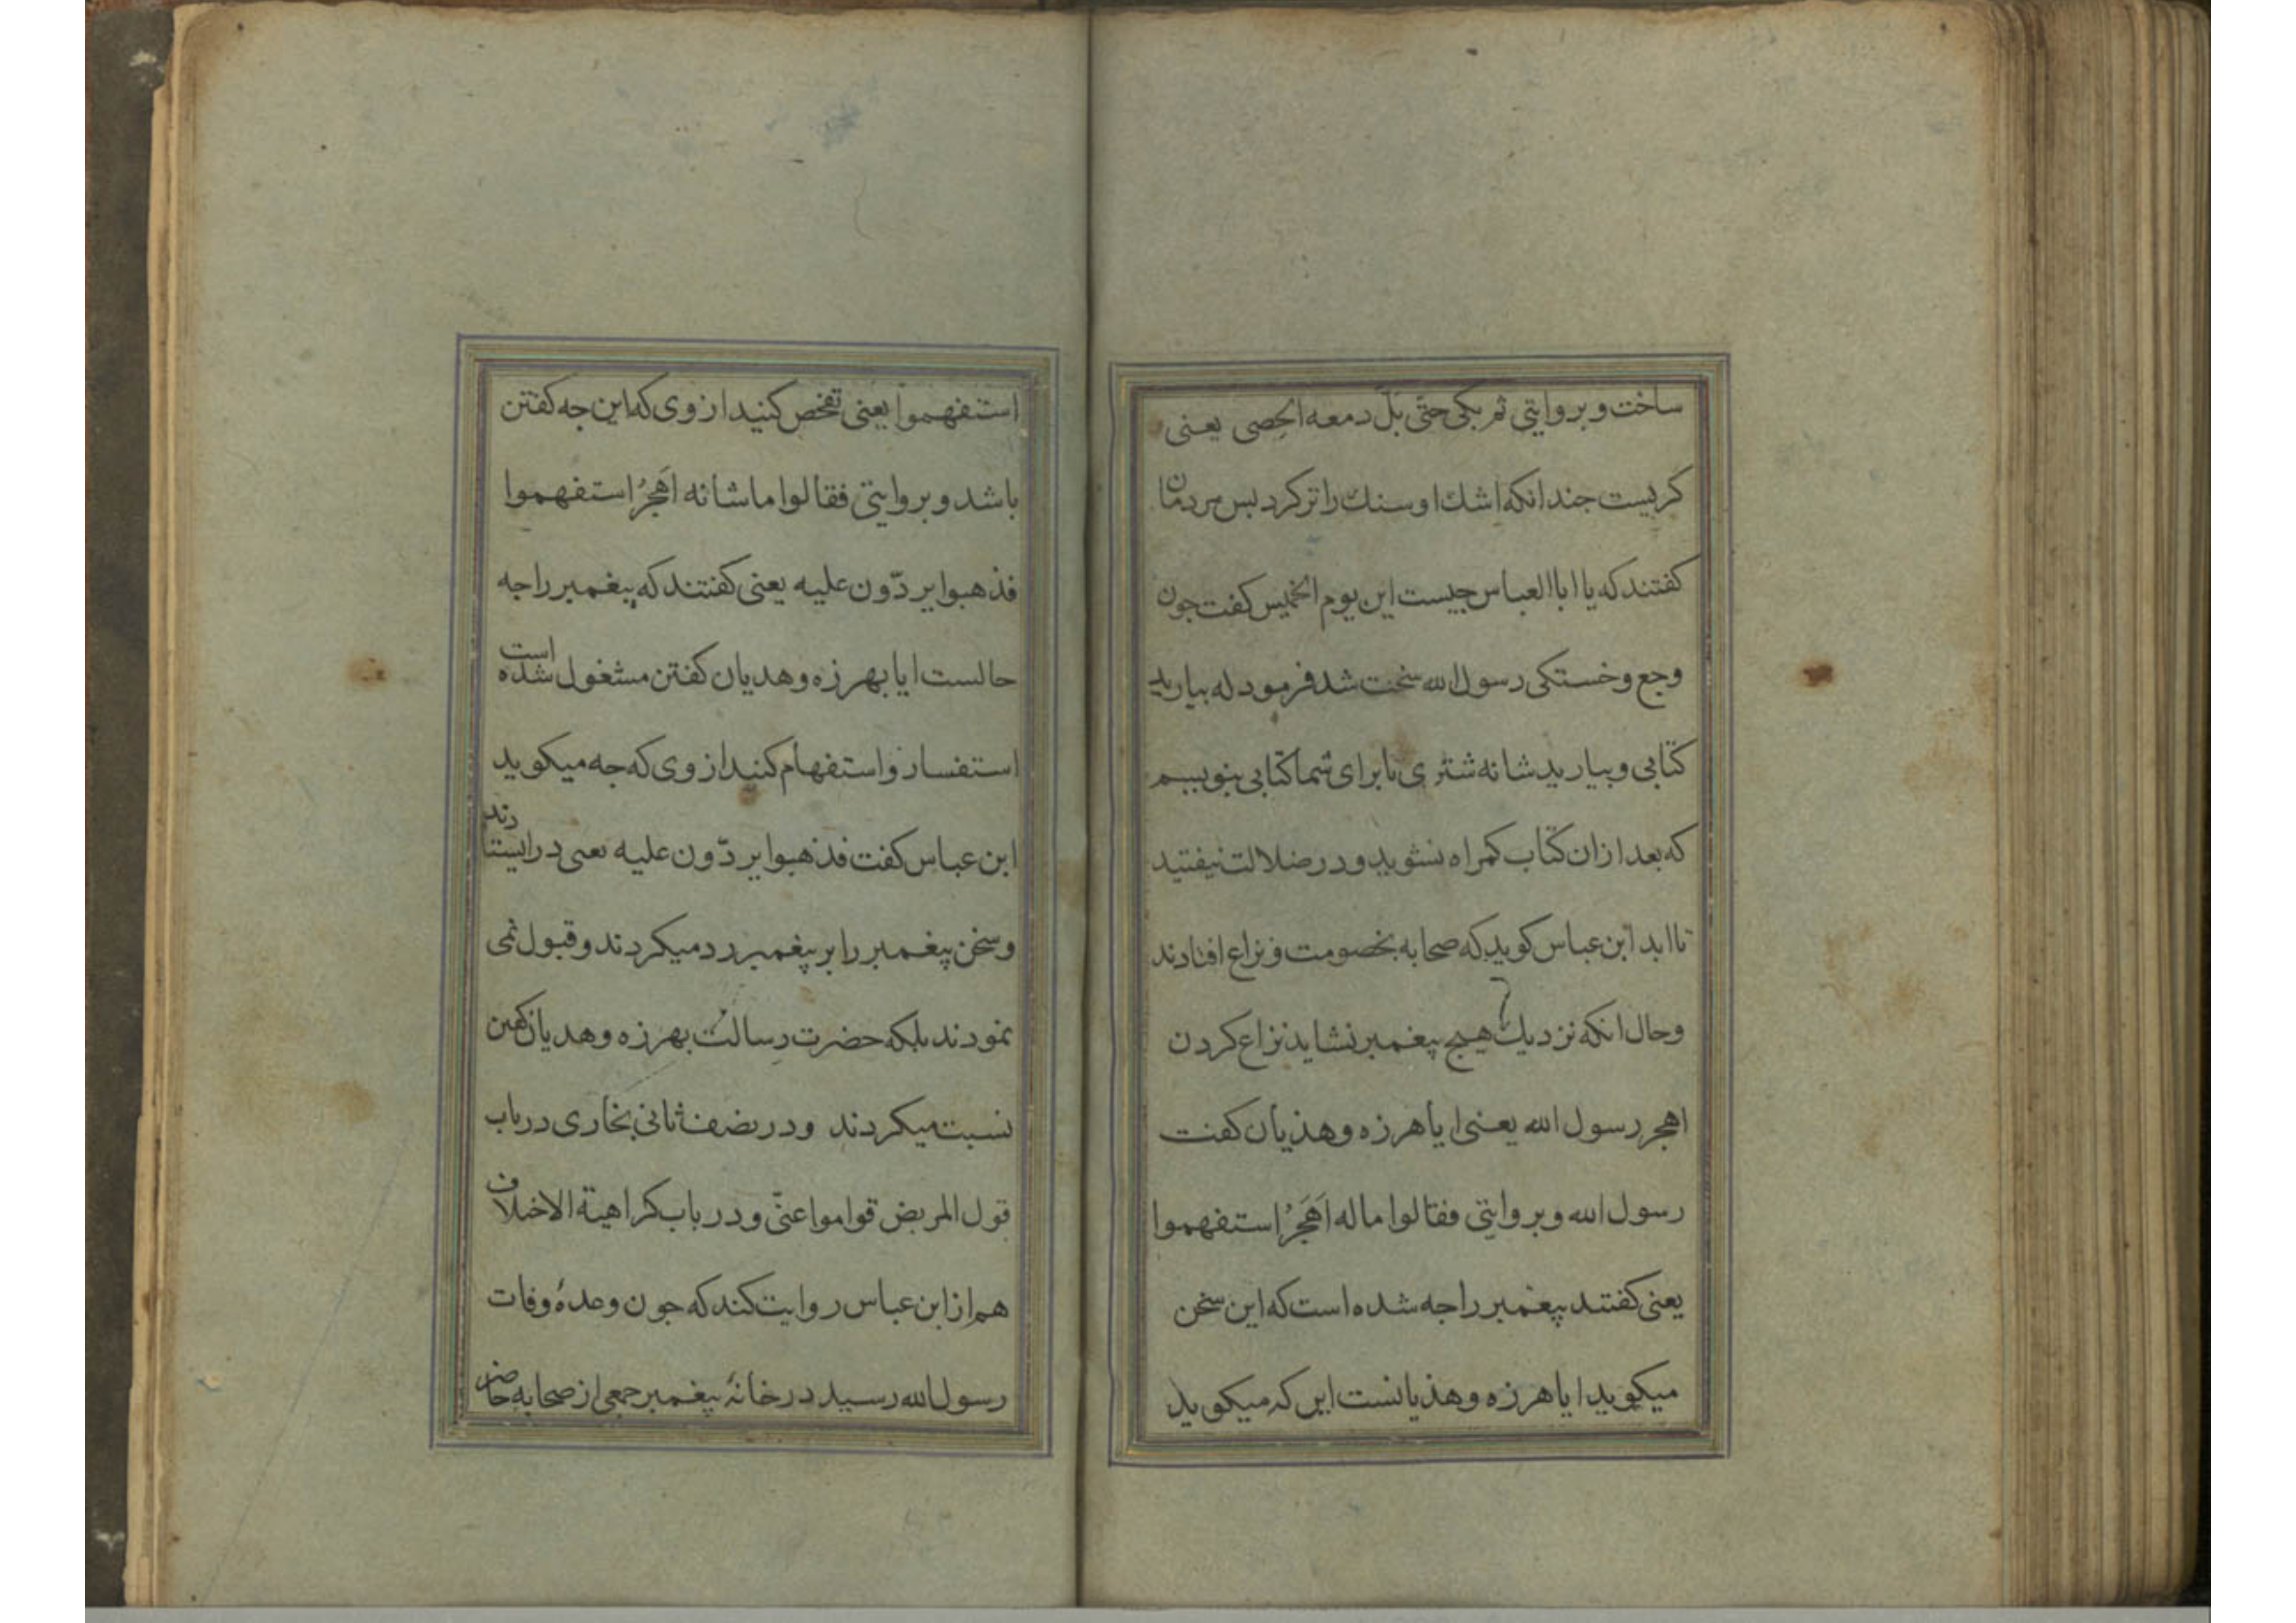 ساخت و بروایتی ثم بکی حتّی بَلّ دمعه الحصی یعنی
کریست جندانکه اشك او سنك را تر کرد بس مردمان
کفتند که یا ابا العباس جیست این یوم الخمیس کفت جون
وجع و خستکی رسول الله سخت شد فرمود له بیارید
کتابی و بیارید شانه شتری تا برای شما کتابی بنویسم
که بعد ازان کتاب کمراه نشوید و در ضلالت نیفتید
تا ابد ابن عباس کوید که صحابه بخصومت و نزاع افتادند
و حال انکه نزدیك هیچ پیغمبر نشاید نزاع کردن
اهجر رسول الله یعنی ایا هرزه و هذیان کفت
رسول الله و بروایتی فقالوا ماله اَهَجَرُ استفهموا
یعنی کفتند پیغمبر را جه شده است که این سخن
میکوید ایا هرزه و هذیانست این که میکوید
استفهموا یعنی تفحص کنید از وی که این جه کفتن
باشد و بروایتی فقالوا ما شانه اَهَجرُ استفهموا
فذهبوا یردّون علیه یعنی کفتند که پیغمبر را جه
حالست ایا بهرزه و هدیان کفتن مشغول شده است
استفسار و استفهام کنید از وی که جه میکوید
ابن عباس کفت فذهبوا یردّون علیه یعنی در ایستادند
و سخن پیغمبر را بر پیغمبر رد میکردند و قبول نمی
نمودند بلکه حضرت رسالت بهرزه و هدیان کفتن
نسبت میکردند و در نصف ثانی بخاری در باب
قول المریض قواموا عنّی و در باب کراهیة الاختلاف
هم از ابن عباس روایت کند که جون وعدهٔ وفات
رسول الله رسید در خانهٔ پیغمبر جمعی از صحابه حاضر